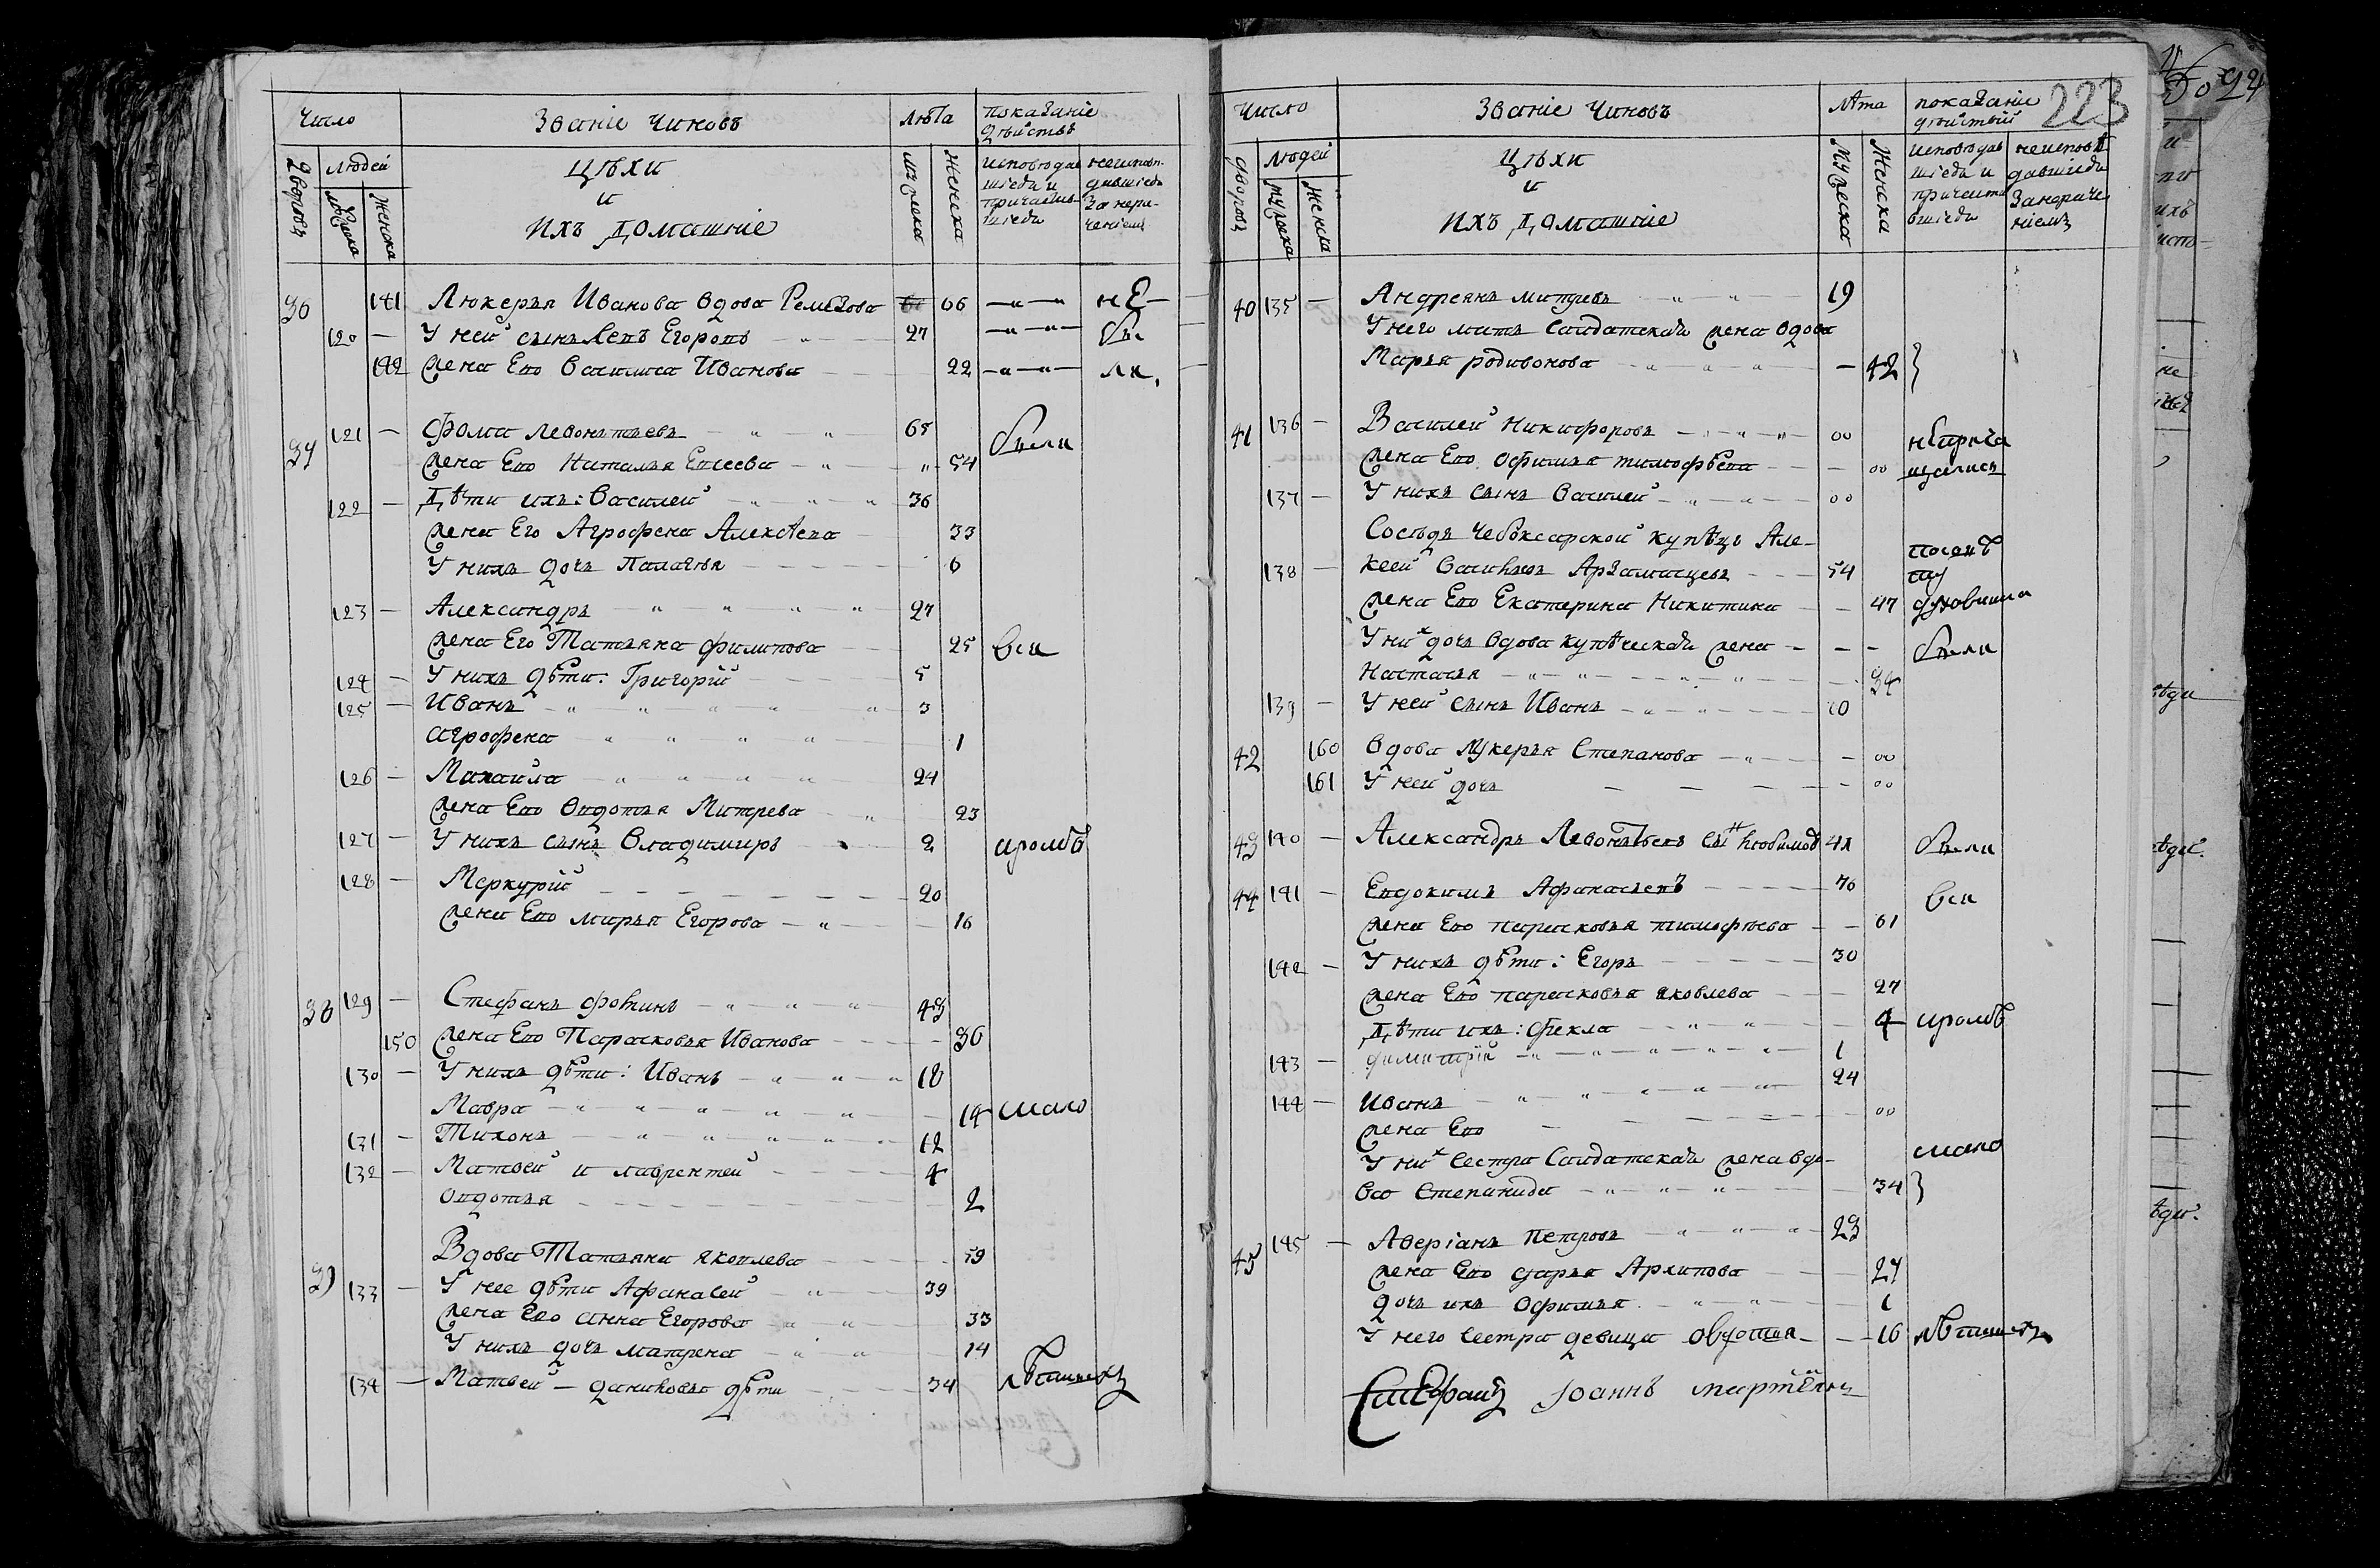 Число Званіе чиновъ Лѣта показаніе дѣйствъ
Дворовъ людей цѣхи мужеска женска исповѣдав нсиповѣ.
мужеска женска и шіеся и давшіеся
ихъ домашніе причастив за нера-
шіеся ченіемъ
36 141 Люкерья Иванова вдова Ремезова 66 не
120 У ней сынъ Левъ Егоровъ 27 бы
142 жена Его Василиса Иванова 22 ли.
37 121 Фома Левонътьевъ 65 были
жена Его Наталья Елесева 54
122 Дѣти ихъ: Василей 36
жена Его Агрофена Алексѣева 33
У нихъ дочь Палагѣя 6
123 Александръ 27
жена Его Татьяна филипова 25 вси
124 У нихъ дѣти: Григорій 5
125 Иванъ 3
агрофена 1
126 Михаила 24
жена Его Овдотья Митрева 23
127 У нихъ сынъ Владимиръ 2 кромѣ
128 Меркурій 20
жена Его марья Егорова 16
38 129 Стефанъ фотинъ 43
150 жена Его Парасковья Иванова 36
130 У нихъ дѣти: Иванъ 18
Мавра 14 мало
131 Тихонъ 12
132 Матвей и лаврентей 4
Овдотья 2
39 Вдова Татьяна яковлева 59
133 У нее дѣти Афанасей 39
жена Его анна Егорова 33
У нихъ дочь матрена 14
134 Матвей — даниловы дѣти 34 лѣтныхъ
223
Число Званіе чиновъ лѣта показаніе дѣйствій
дворовъ людей цѣхи мужеска женска исповѣдав неисповѣ
мужеска женска и шіеся и давшіеся
ихъ домашніе причасти за нераче
вшіеся ніемъ
40 135 Андреянъ митревъ 19
У него мать салдатская жена вдова
Марья родивонова 42
41 136 Василей никифоровъ 00 неприча
жена Его Офимья тимофѣева 00 щались
137 У нихъ сынъ Василей 00
Сосѣдъ чебоксарской купѣцъ Але- посовѣ
138 ксей Васильевъ Арзамасцевъ 54 ту
жена Его Екатерина Никитина 47 духовника
У них дочь вдова купѣческая жена были
Наталья 34
139 У ней сынъ Иванъ 10
42 160 вдова лукерья Степанова 00
161 У ней дочь 00
43 140 Александръ Левонтьевъ сын любимовъ 41 были
44 141 Евдокимъ Афанасьевъ 70 вси
жена Его парасковья тимофѣева 61
142 У нихъ дѣти: Егоръ 30
жена Его парасковья яковлева 27
Дѣти ихъ: фекла 4 кромѣ
143 димитрій 1
144 Иванъ 24
жена Его 00
У них сестра салдатская жена вдо- мало
ва Степанида 34
45 145 Аверіанъ Петровъ 23
жена Его дарья Архипова 27
дочь ихъ Офимья 1
У него сестра девица овдотья 16 лѣтныхъ
Стефанъ Іоаннъ